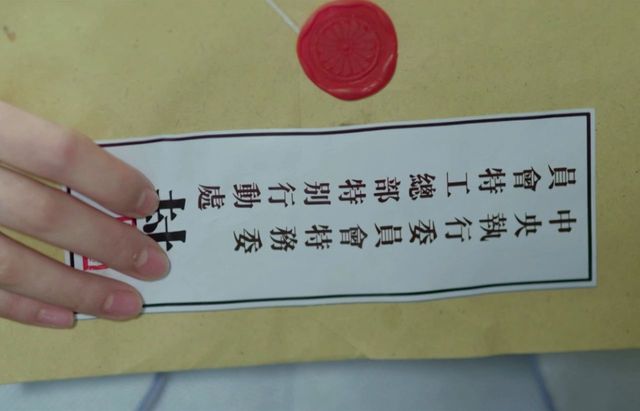 中央執行委員會特務委
員會特工總部特别行動處
封